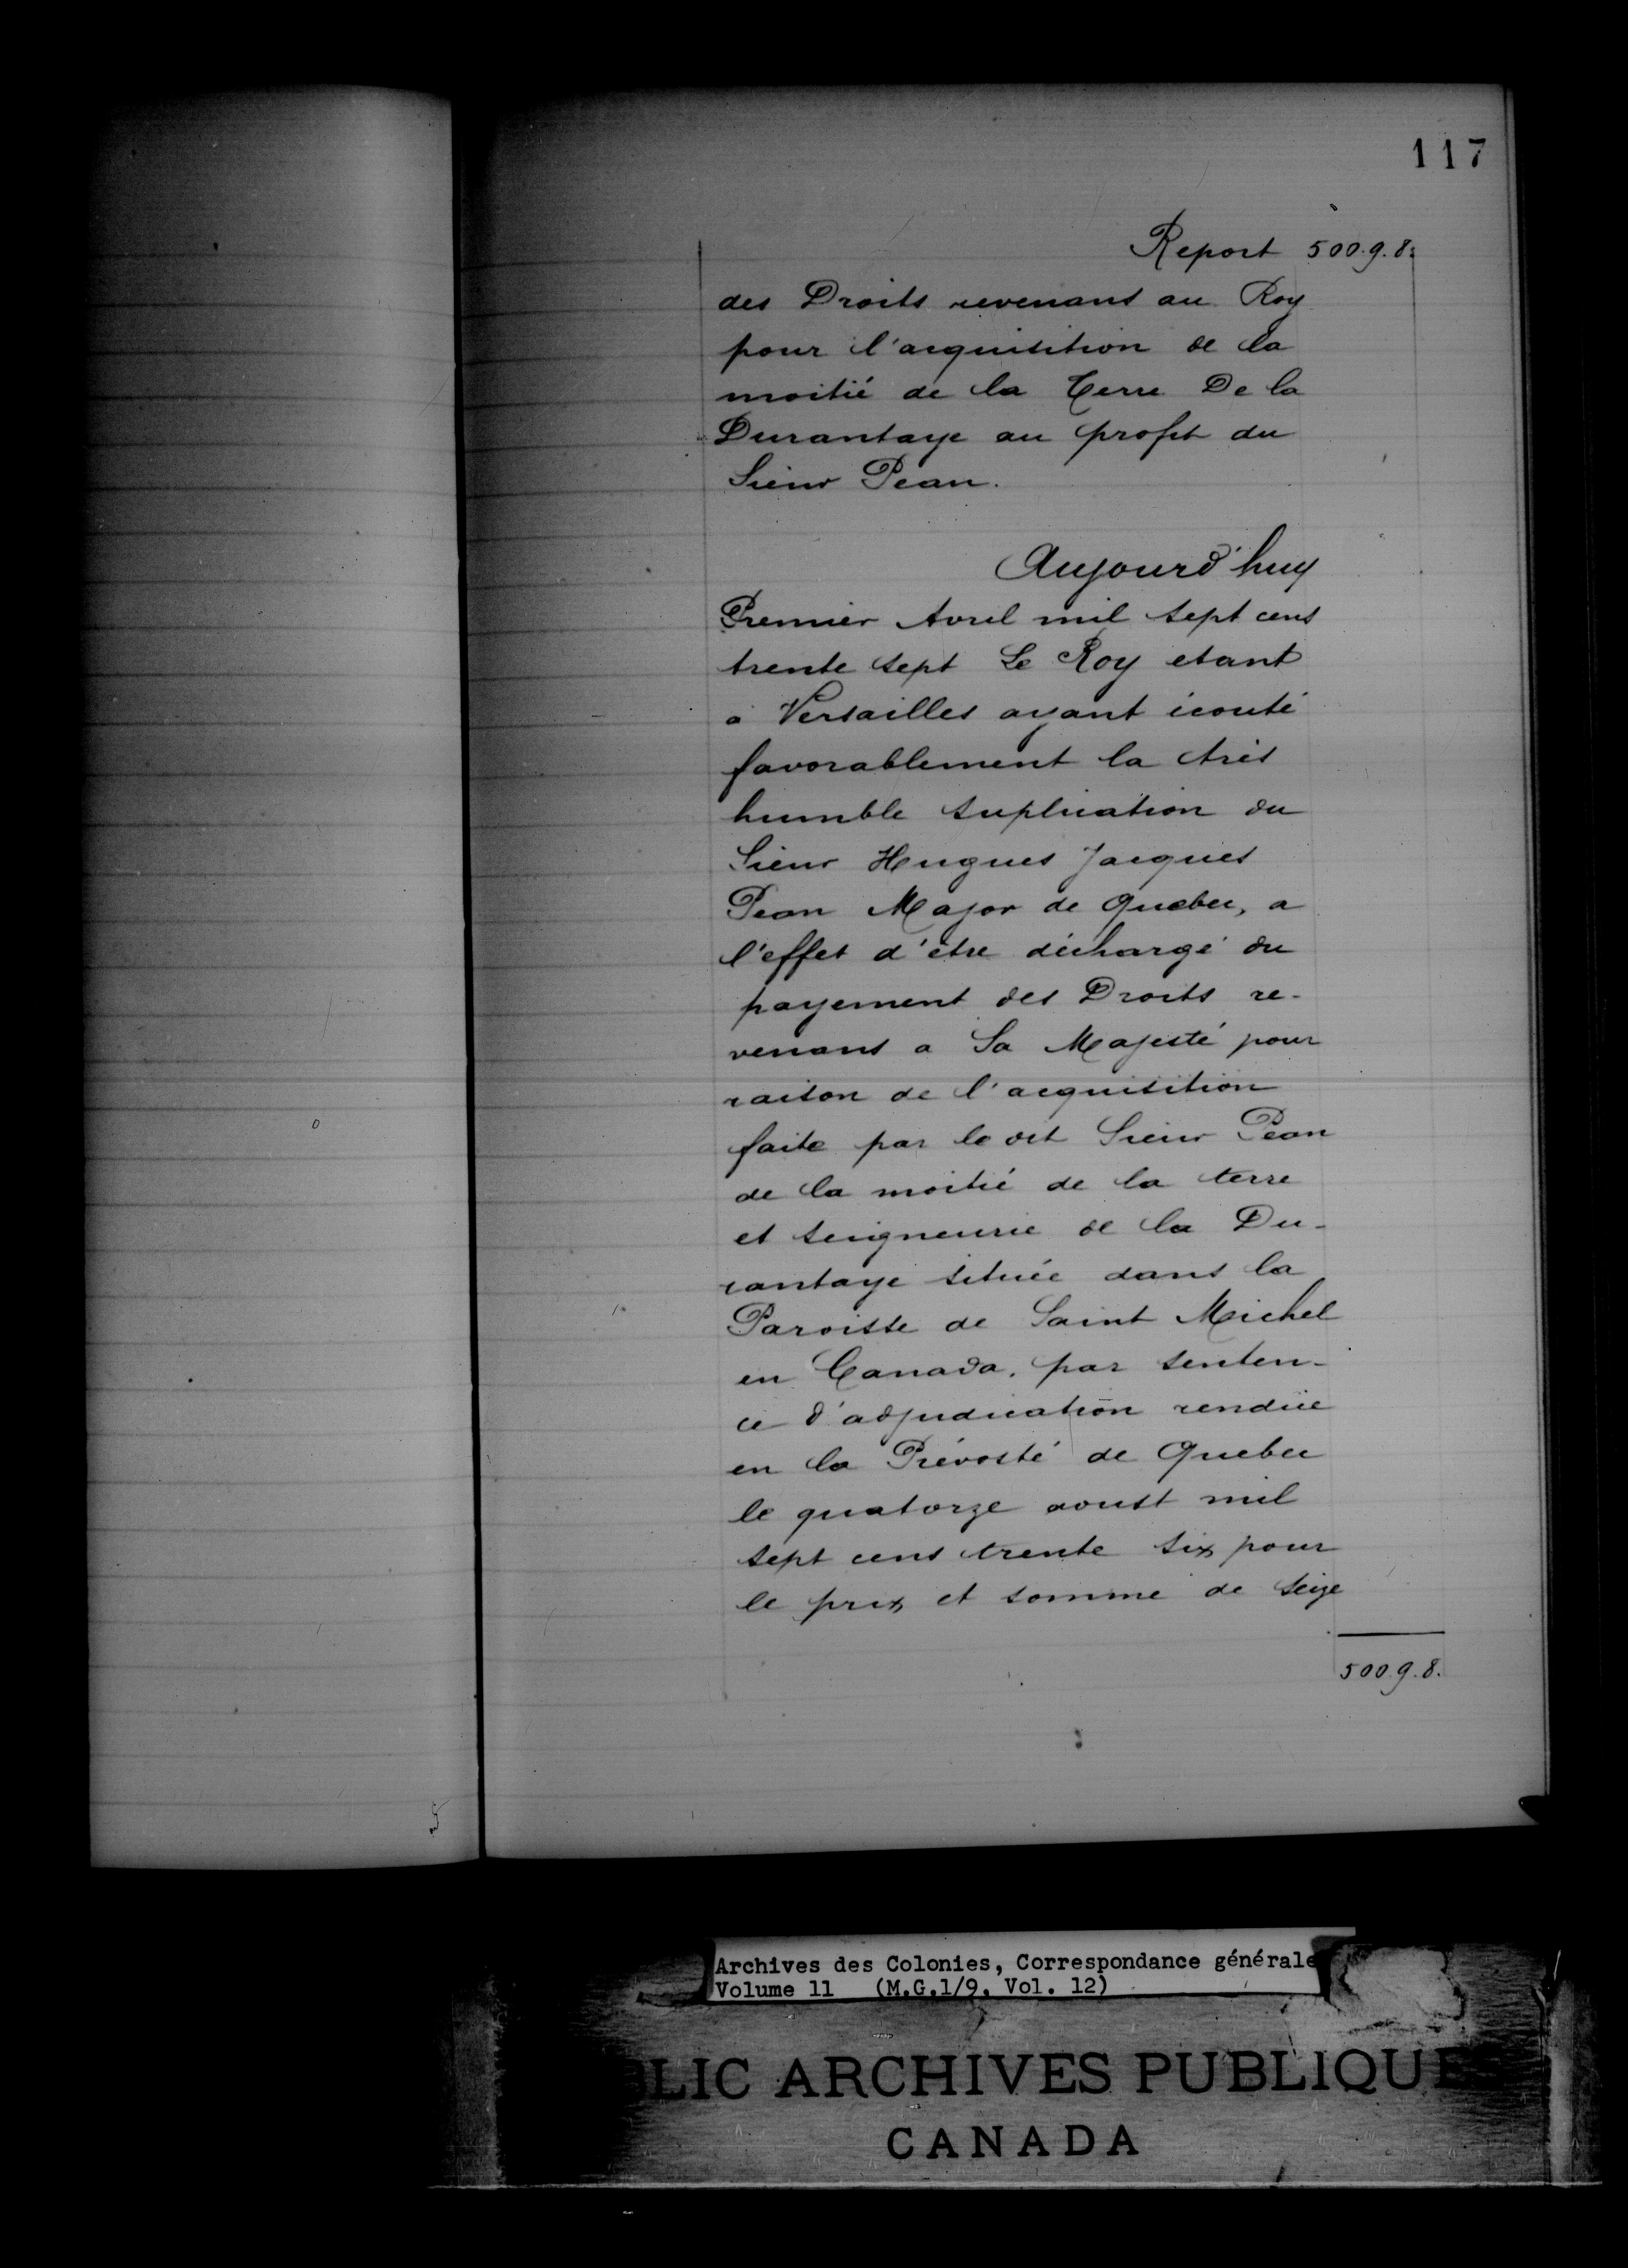 117
Report 500.9.8.
des Droits revenans au Roy
pour l'acquisition de la
moitié de la Terre De la
Durantaye au profit du
Sieur Pean.
Aujourd'huy
Premier Avril mil sept cens
trente sept Le Roy etant
a Versailles ayant écouté
favorablement la très
humble suplication du
Sieur Hugues Jacques
Pean Major de Quebec, a
l'effet d'être déchargé du
payement des Droits re-
venans a Sa Majesté pour
raison de l'acquisition
faite par le dit Sieur Pean
de la moitié de la terre
et seigneurie de la Du-
rantaye située dans la
Paroisse de Saint Michel
en Canada, par senten-
ce d'adjudication rendüe
en la Prévosté de Quebec
le quatorze aoust mil
sept cens trente six pour
le prix et somme de seize
500.9.8.
Archives des Colonies, Correspondance générale
Volume 11 (M.G.1/9, Vol. 12)
BLIC ARCHIVES PUBLIQUE
CANADA